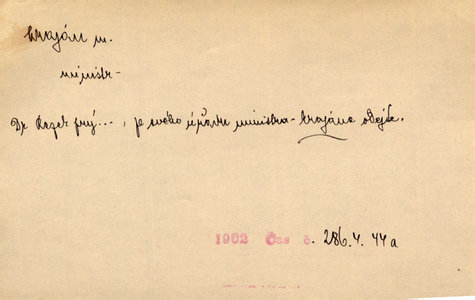 krajan m.
ministr-
Dr. Rezek prý..., že svého úřadu ministra-krajana odejde.
1902 Čas č. 286.4.44a